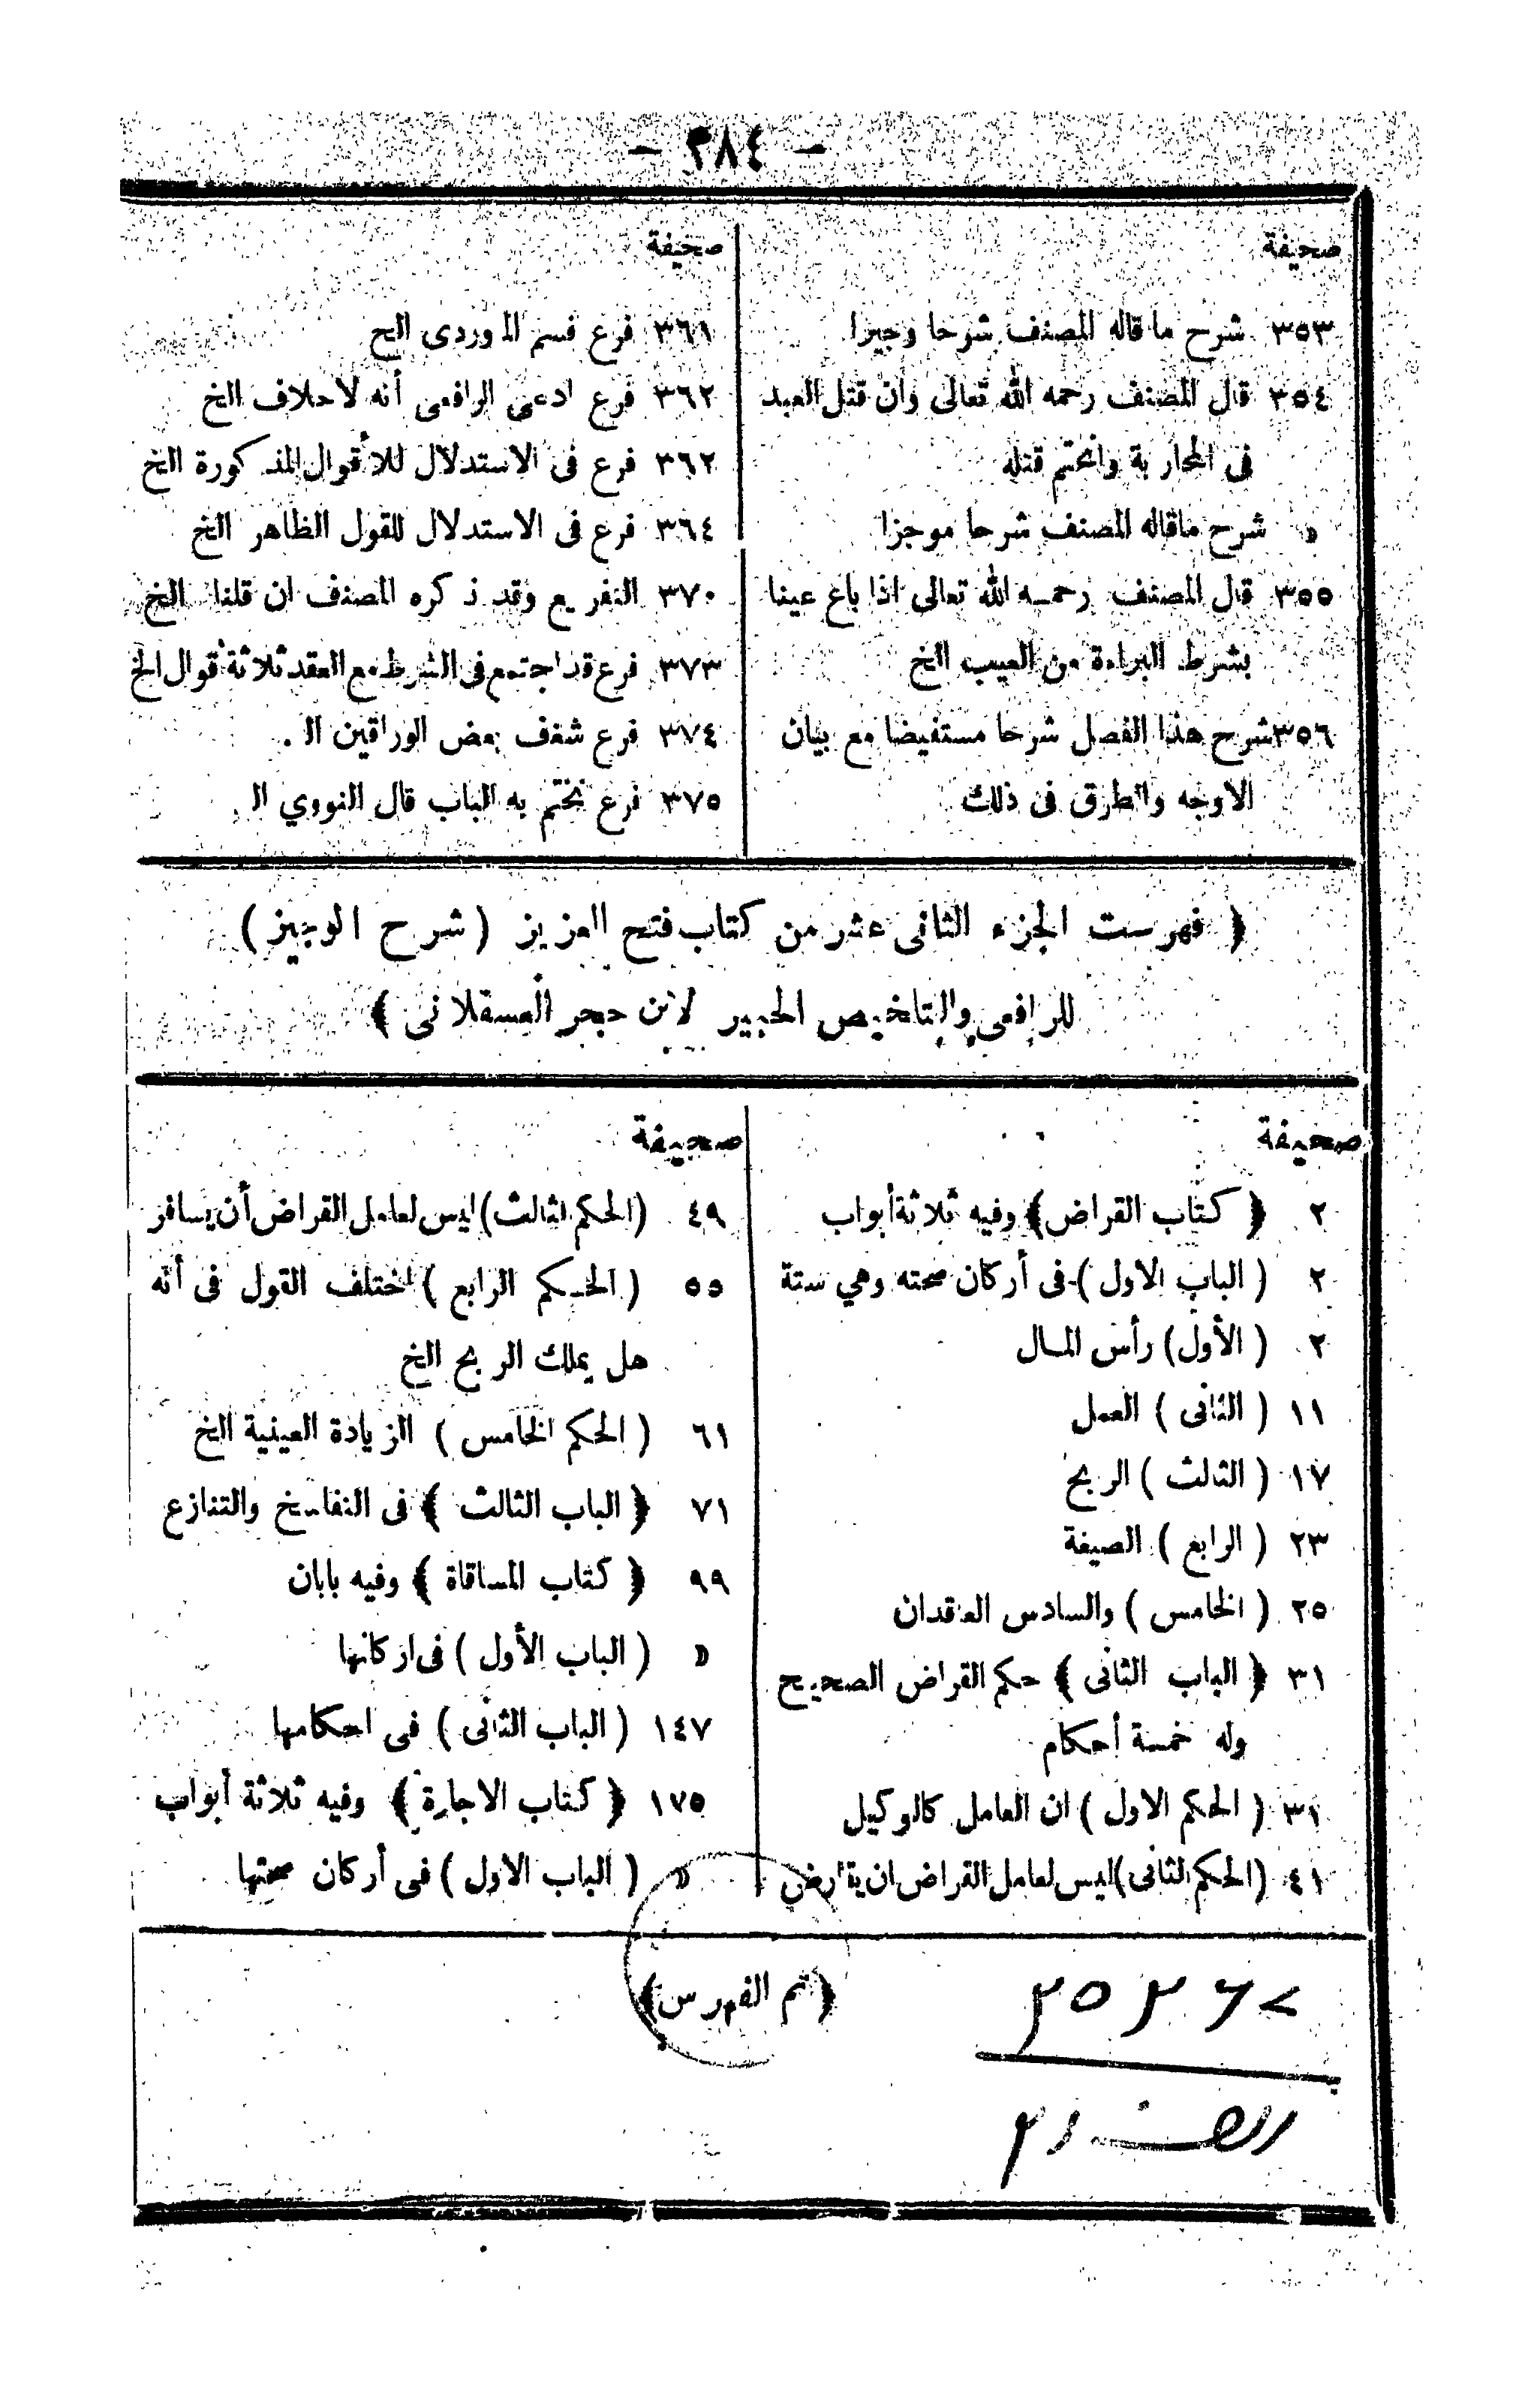 - ٣٨٤ -
صحيفة
٣٥٣ شرح ما قاله المصنف شرحا وجيزا
٣٥٤ قال المصنف رحمه الله تعالى وان قتل العبد
فى المحاربة وانختم قتله
» شرح ماقاله المصنف شرحا موجزا
٣٥٥ قال المصنف رحمه الله تعالى اذا باع عينا
بشرط البراءة من العيب الخ
٣٥٦ شرح هذا الفصل شرحا مستفيضا مع بيان
الاوجه والطرق فى ذلك
صحيفة
٣٦١ فرع قسم الماوردى الخ
٣٦٢ فرع ادعى الرافعى أنه لاخلاف الخ
٣٦٢ فرع فى الاستدلال للأقوال المذكورة الخ
٣٦٤ فرع فى الاستدلال للقول الظاهر الخ
٣٧٠ التفريع وقد ذكره المصنف ان قلنا الخ
٣٧٣ فرع قد اجتمع فى الشرط مع العقد ثلاثة أقوال الخ
٣٧٤ فرع شغف بعض الوراقين ال
٣٧٥ فرع نختم به الباب قال النووي ال
﴿ فهرست الجزء الثانى عشر من كتاب فتح العزيز (شرح الوجيز)
للرافعى والتلخيص الحبير لابن حجر العسقلانى ﴾
صحيفة
٢ ﴿ كتاب القراض ﴾ وفيه ثلاثة أبواب
٢ ( الباب الاول ) فى أركان صحته وهي ستة
٢ ( الأول ) رأس المال
١١ ( الثانى ) العمل
١٧ ( الثالث ) الربح
٢٣ ( الرابع ) الصيغة
٢٥ ( الخامس ) والسادس العاقدان
٣١ ﴿ الباب الثانى ﴾ حكم القراض الصحيح
وله خمسة أحكام
٣١ ( الحكم الاول ) ان العامل كالوكيل
٤١ ( الحكم الثانى ) ليس لعامل القراض ان يقارض
صحيفة
٤٩ (الحكم الثالث) ليس لعامل القراض أن يسافر
٥٥ ( الحكم الرابع ) اختلف القول فى أنه
هل يملك الربح الخ
٦١ ( الحكم الخامس ) الزيادة العينية الخ
٧١ ﴿ الباب الثالث ﴾ فى التفاسخ والتنازع
٩٩ ﴿ كتاب المساقاة ﴾ وفيه بابان
» ( الباب الأول ) فى اركانها
١٤٧ ( الباب الثانى ) فى احكامها
١٧٥ ﴿ كتاب الاجارة ﴾ وفيه ثلاثة أبواب
» ( الباب الاول ) فى أركان صحتها
﴿تم الفهرس﴾